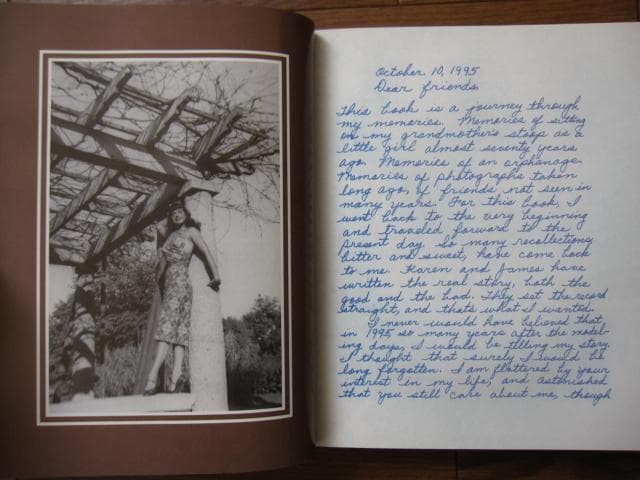 October 10, 1995
Dear friends,
This book is a journey through
my memories. Memories of sitting
on my grandmother's stoop as a
little girl almost seventy years
ago. Memories of an orphanage.
Memories of photographs taken
long ago, of friends not seen in
many years. For this book, I
went back to the very beginning
and traveled forward to the
present day. So many recollections,
bitter and sweet, have come back
to me. Karen and James have
written the real story, both the
good and the bad. They set the record
straight, and that's what I wanted.
I never would have believed that
in 1995, so many years after the model-
ing days, I would be telling my story.
I thought that surely I would be
long forgotten. I am flattered by your
interest in my life, and astonished
that you still care about me, though